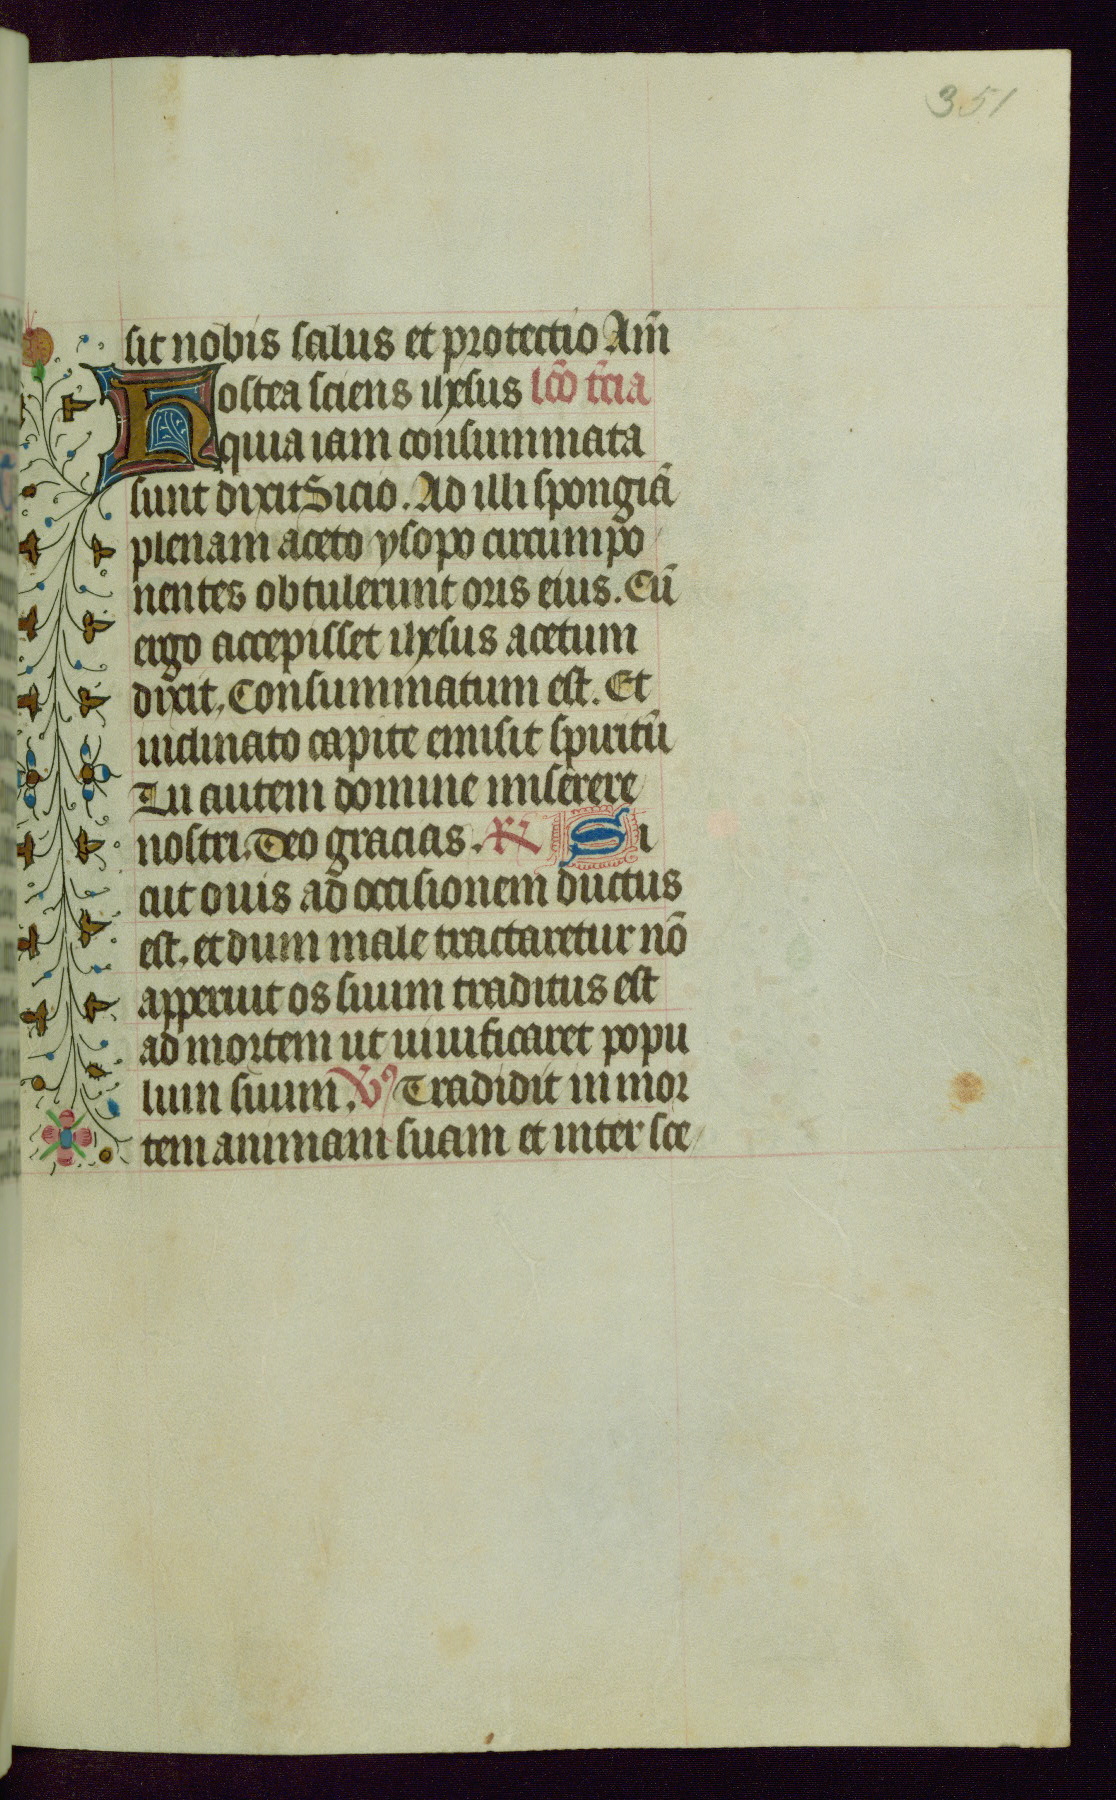 351
sit nobis salus et protectio Am̄
Postea sciens ihesus lc̄o t̄cia
quia iam consummata
sunt dixit Sicio. Ad illi spongiā
plenam aceto ysopo circumpo
nentes obtulerunt oris eius. Cū
ergo accepisset ihesus acetum
dixit. Consummatum est. Et
inclinato capite emisit spiritū
Tu autem domine miserere
nostri. Deo gracias. R Si
cut ouis ad occisionem ductus
est. et dum male tractaretur nō
apperuit os suum traditus est
ad mortem ut uiuificaret popu
lum suum. V Tradidit in mor
tem animam suam et inter sce